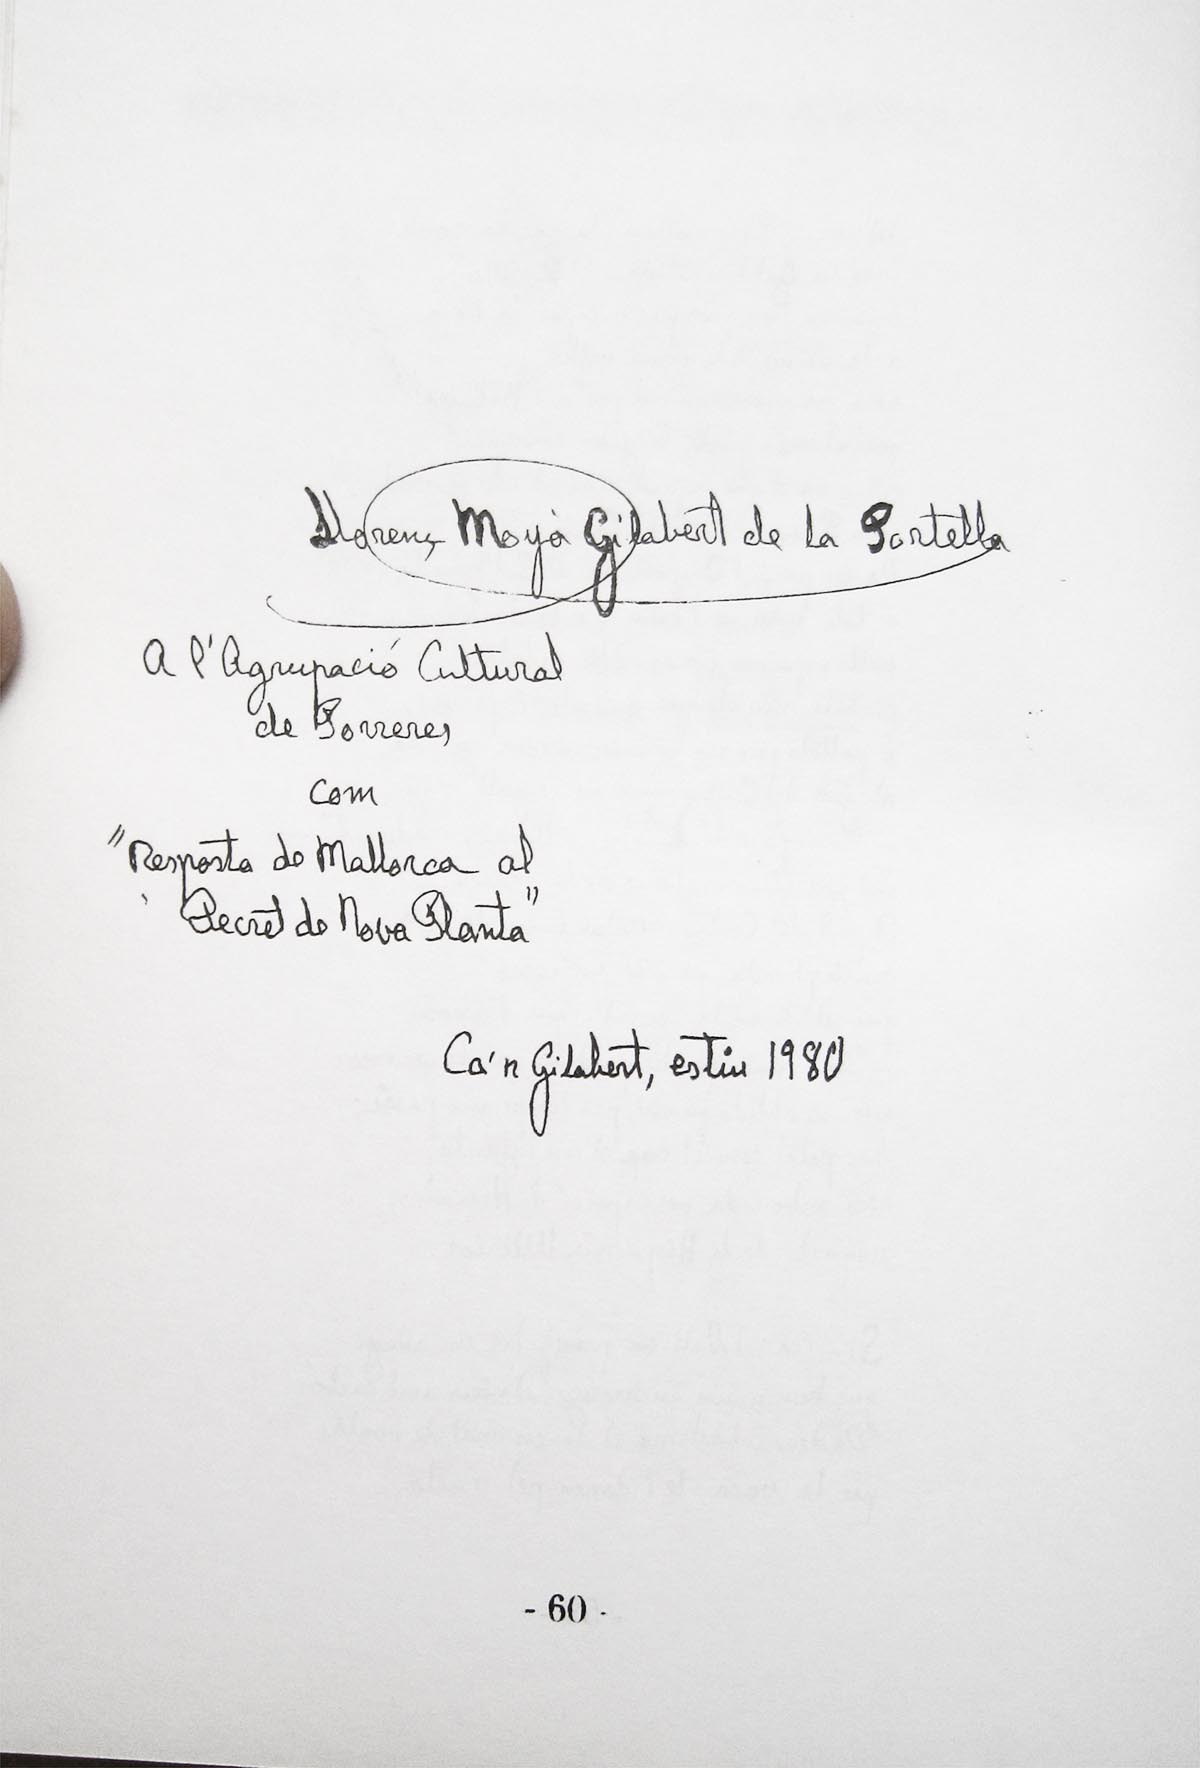 Llorenç Moyà Gilabert de la Portella
A l'Agrupació Cultural
de Porreres
com
"Resposta de Mallorca al
Decret de Nova Planta"
Ca'n Gilabert, estiu 1980
- 60 -